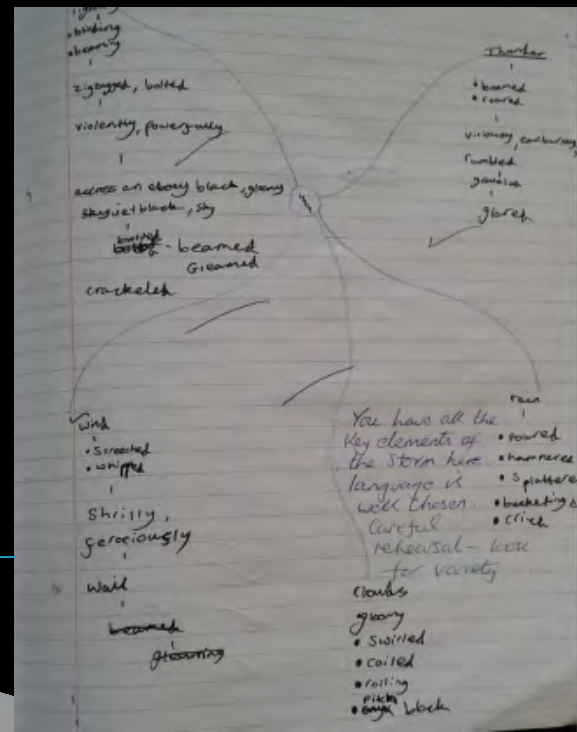 • blinding
• beaming
zigzagged, bolted
violently, powerfully
across an ebony black, gloomy
sky jet black, sky
- beamed
Gleamed
crackeled
Thunder
• boomed
• roared
rumbled
glared
wind
• Screeched
• whipped
Shrilly,
ferociously
wail
beamed
gleaming
You have all the
key elements of
the storm here.
language is
well chosen.
Careful
rehearsal - look
for variety
rain
• Poured
• hammered
• Splattere
• bucketing d
clouds
gloomy
• Swirled
• coiled
• rolling
pitch
• black